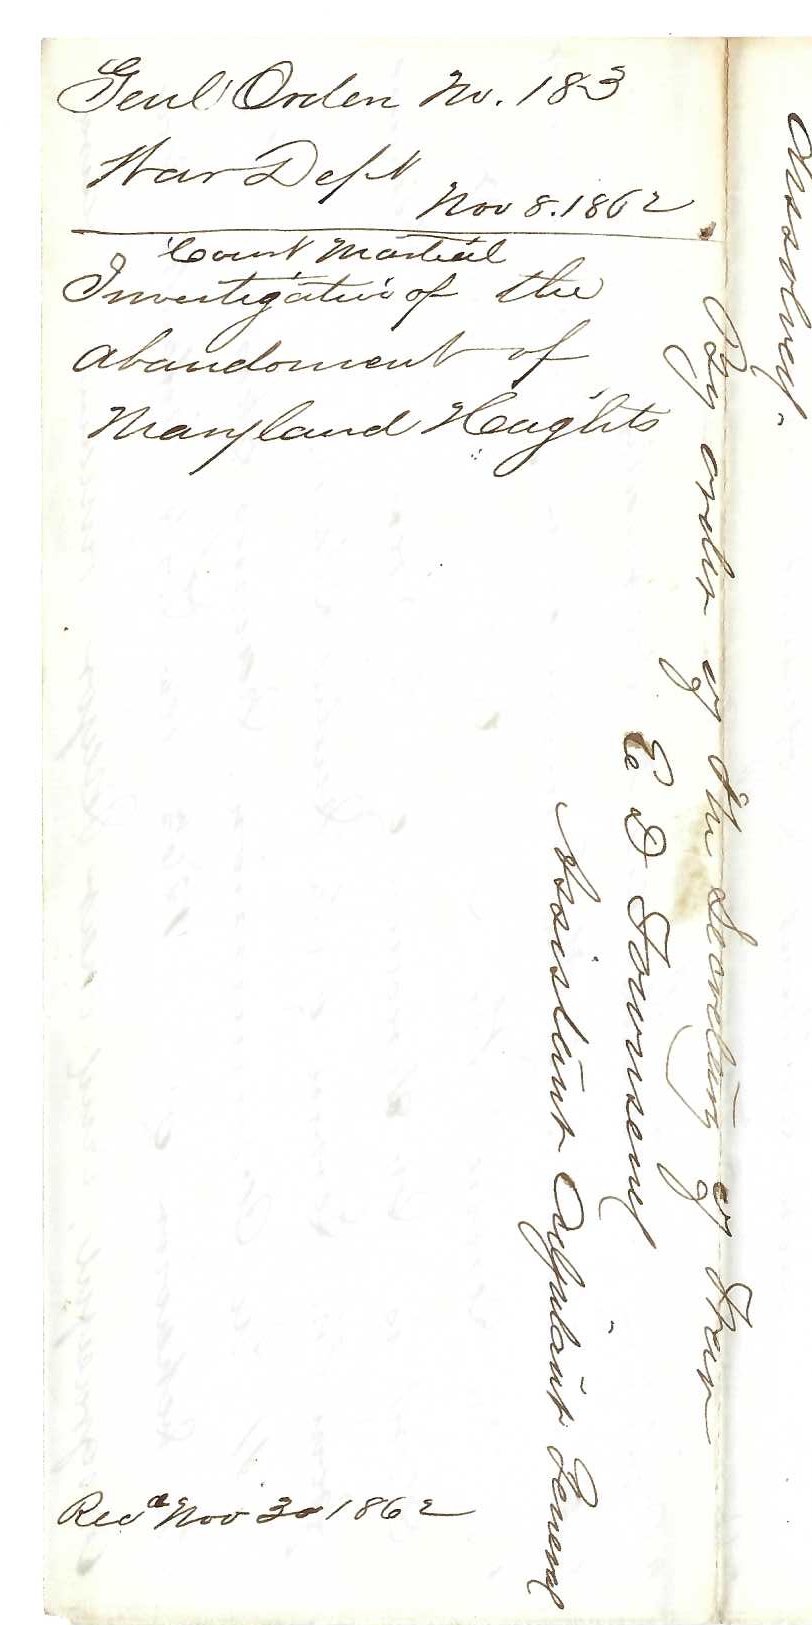 Genl Order No. 183
War Dept
Nov 8. 1862
Court Martial
Investigation of the
abandoment of
Maryland Heights
Recd Nov 30 1862
dissolved.
By order of the Secretary of War
E D Townsend
Assistant Adjutant General